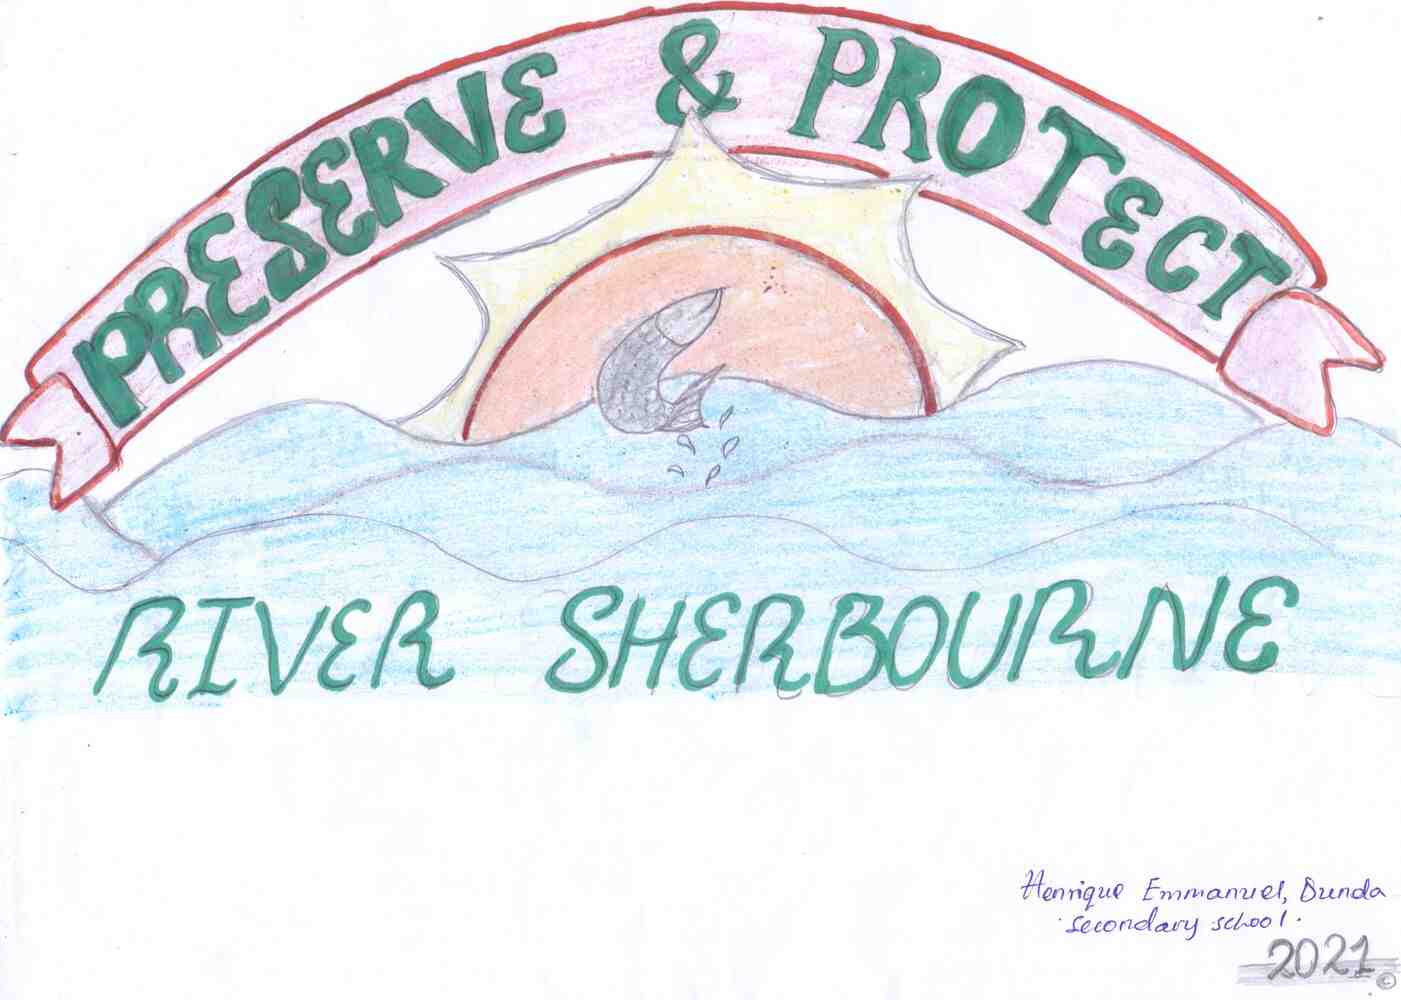 PRESERVE & PROTECT
RIVER SHERBOURNE
Henrique Emmanuel, Dunda
secondary school.
2021
©